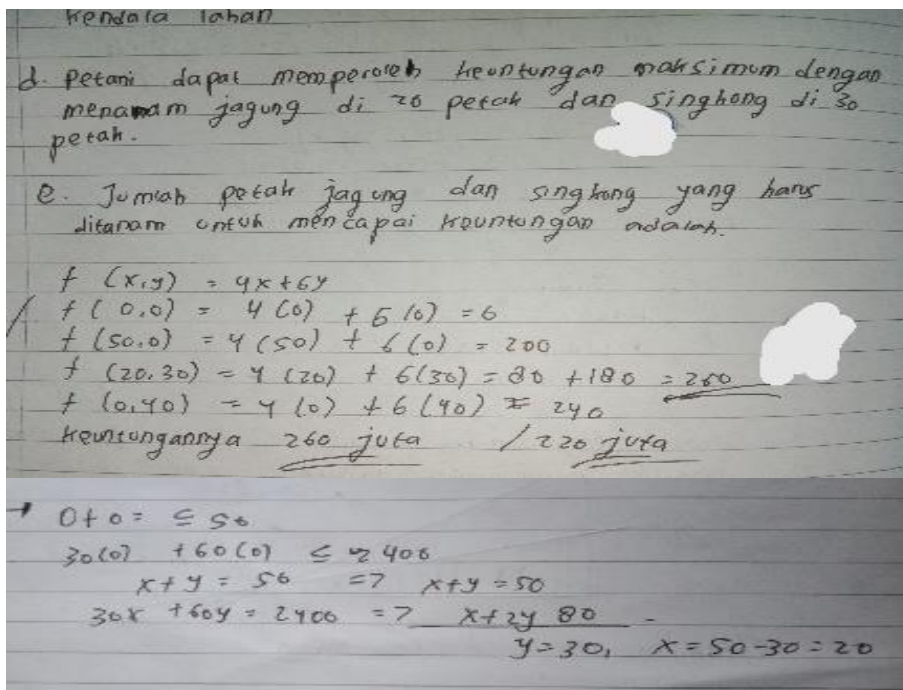 kendala lahan
d. Petani dapat memperoleh keuntungan maksimum dengan
menanam jagung di 20 petak dan singkong di 30
petak.
e. Jumlah petak jagung dan singkong yang harus
ditanam untuk mencapai keuntungan adalah.
f (x,y) = 4x+6y
f (0,0) = 4 (0) + 6 (0) = 0
f (50,0) = 4 (50) + 6 (0) = 200
f (20,30) = 4 (20) + 6(30) = 80 + 180 = 260
f (0,40) = 4 (0) + 6 (40) = 240
keuntungannya 260 juta / 220 juta
→ 0+0 = ≤ 50
30(0) + 60(0) ≤ 2400
x+y = 50 => x+y = 50
30x + 60y = 2400 => x+2y 80 -
y=30, x=50-30=20